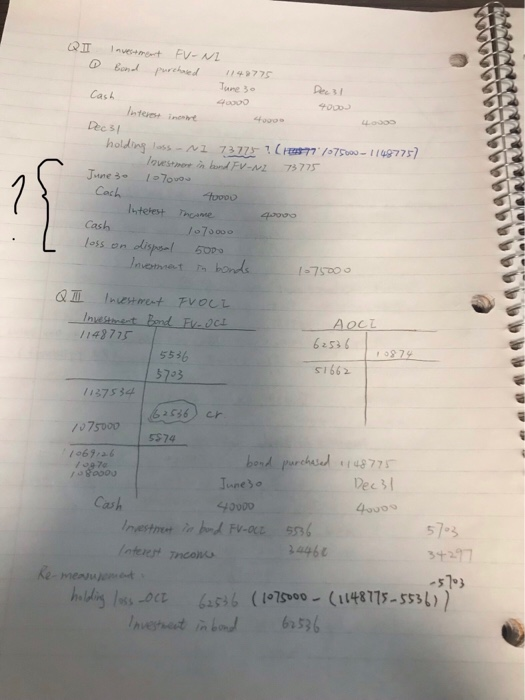 QII Investment FV-NI
① Bond purchased 1148775
June 30 Dec 31
Cash 40000 40000
Interest income 40000 40000
Dec 31
holding loss - NI 73775 ? ( 1075000 - 1148775)
Investment in bond FV-NI 73775
? {
June 30 1070000
Cash 40000
Interest Income 40000
Cash 1070000
loss on disposal 5000
Investment in bonds 1075000
QIII Investment FVOCI
Investment Bond FV-OCI
1148775
5536
5703
1137534
62536 cr
1075000
5874
1069126
10870
1080000
AOCI
62536
10874
51662
bond purchased 1148775
June 30 Dec 31
Cash 40000 40000
Investment in bond FV-OCI 5536 5703
Interest Income 34464 34297
Re-measurement.
holding loss -OCI 62536 (1075000 - (1148775-5536)) -5703
Investment in bond 62536